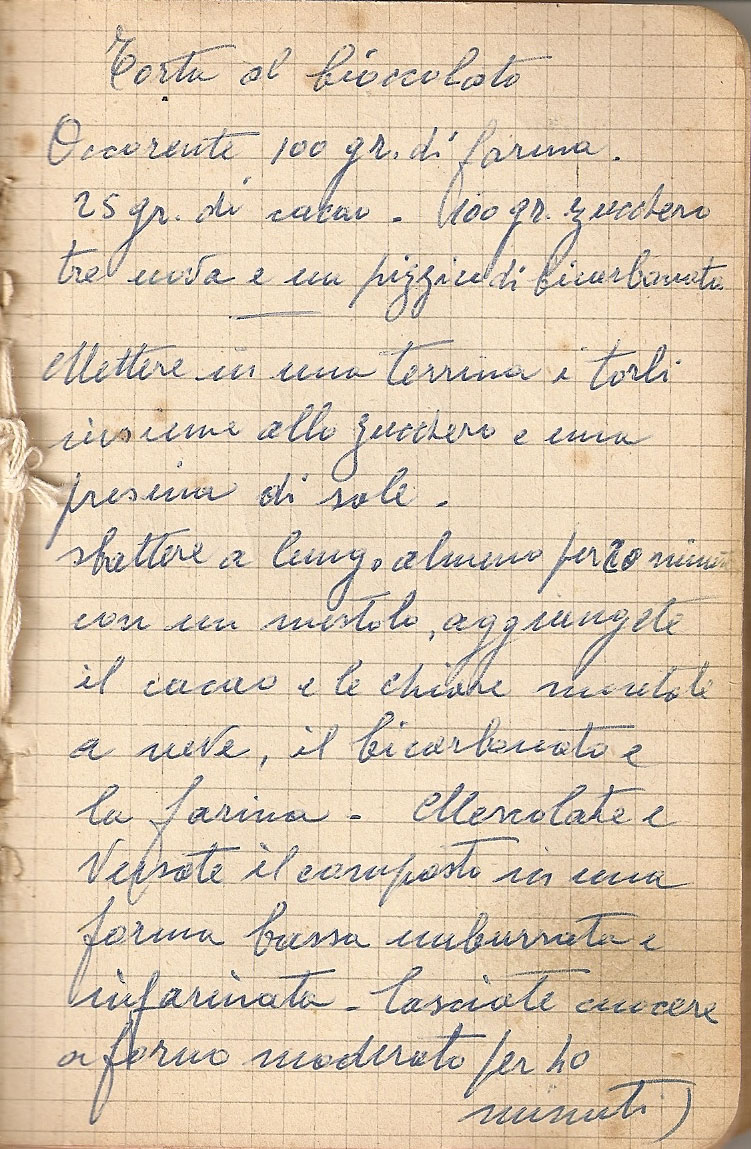 Torta al cioccolato
Occorente 100 gr. di farina.
25 gr. di cacao - 100 gr. zucchero
tre uova e un pizzico di bicarbonato
Mettere in una terrina i torli
insieme allo zucchero e una
presina di sale.
sbattere a lungo almeno per 20 minuti
con un mestolo, aggiungete
il cacao e le chiare montate
a neve, il bicarbonato e
la farina - Mescolate e
Versate il composto in una
forma bassa imburrata e
infarinata - lasciate cuocere
a forno moderato per 40
minuti)